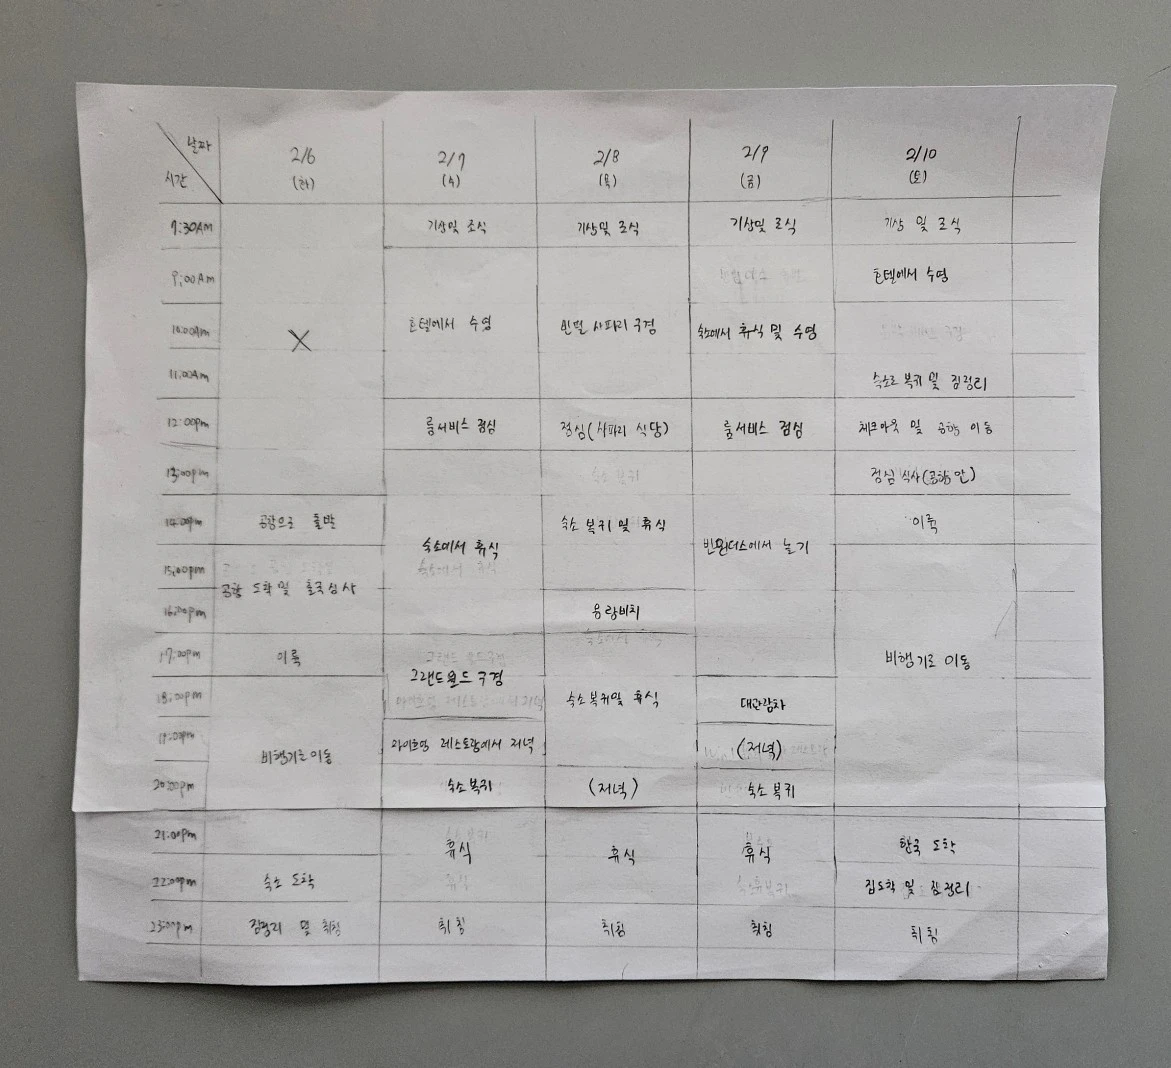 날짜
시간
2/6 2/7 2/8 2/9 2/10
(화) (수) (목) (금) (토)
7:30AM 기상및 조식 기상및 조식 기상및 조식 기상 및 조식
9:00AM 호텔에서 수영
10:00AM X 호텔에서 수영 빈펄 사파리 구경 숙소에서 휴식 및 수영
11:00AM 숙소로 복귀 및 짐정리
12:00pm 룸서비스 점심 점심(사파리 식당) 룸서비스 점심 체크아웃 및 공항 이동
13:00pm 점심 식사(공항 안)
14:00pm 공항으로 출발 숙소 복귀 및 휴식 이륙
숙소에서 휴식 빈원더스에서 놀기
15:00pm
공항 도착 및 출국심사
16:00pm 옹랑비치
17:00pm 이륙 그랜드월드 구경 비행기로 이동
18:00pm 숙소복귀및 휴식 대관람차
19:00pm 비행기로 이동 레스토랑에서 저녁 (저녁)
20:00pm 숙소복귀 (저녁) 숙소 복귀
21:00pm 휴식 휴식 휴식 한국 도착
22:00pm 숙소 도착 집도착 및 짐정리
23:00pm 짐정리 및 취침 취침 취침 취침 취침